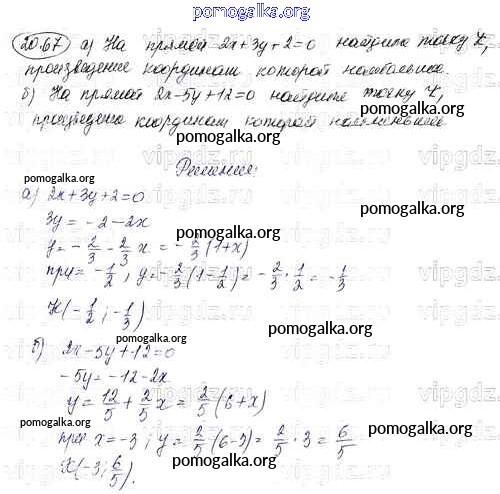 pomogalka.org
20.67 а) На прямой 2x+3y+2=0 найдите точку K,
произведение координат которой наибольшее.
б) На прямой 2x-5y+12=0 найдите точку K,
произведение координат которой наименьшее.
pomogalka.org
Решение:
pomogalka.org
а) 2x+3y+2=0
3y = -2-2x
pomogalka.org
y = -2/3 - 2/3 x = -2/3 (1+x)
pomogalka.org
при = -1/2, y = -2/3 (1-1/2) = -2/3 · 1/2 = -1/3
K(-1/2; -1/3)
pomogalka.org
pomogalka.org
б) 2x-5y+12=0
-5y = -12-2x
pomogalka.org
y = 12/5 + 2/5 x = 2/5 (6+x)
pomogalka.org
pomogalka.org
при x=-3; y = 2/5 (6-3) = 2/5 · 3 = 6/5
K(-3; 6/5).
pomogalka.org
pomogalka.org